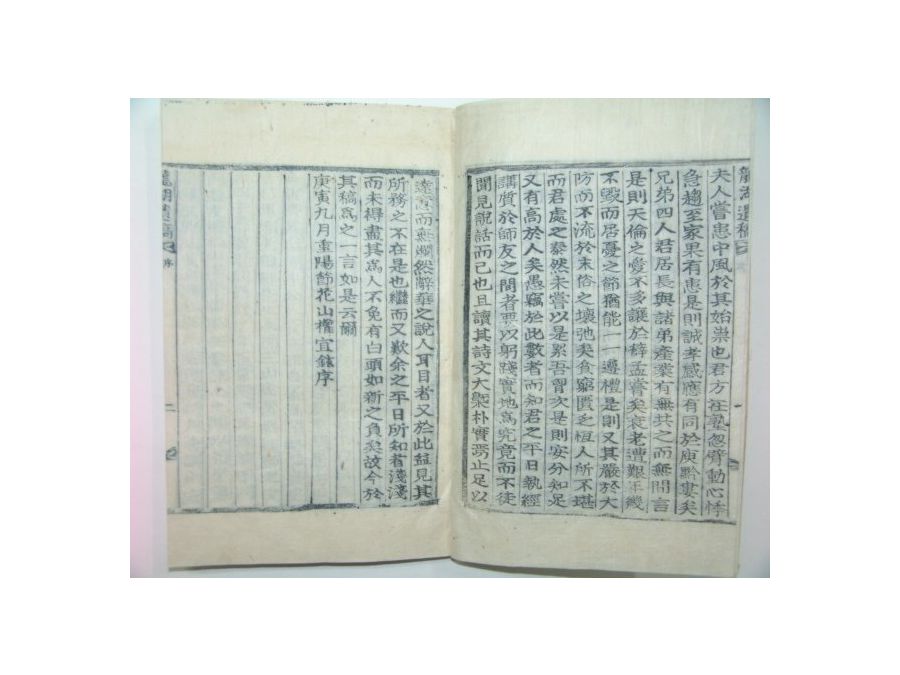 龍湖遺稿
夫人嘗患中風於其始祟也君方在塾忽臂動心悸
急趨至家果有患是則誠孝感應有同於庾黔婁矣
兄弟四人君居長與諸弟產業有無共之而無間言
是則天倫之愛不多讓於薛孟嘗矣衰老遭艱年幾
不毀而居憂之節猶能一一遵禮是則又其嚴於大
防而不流於末俗之壞弛矣貧窮匱乏恒人所不堪
而君處之泰然未嘗以是累吾胷次是則安分知足
又有高於人矣愚竊於此數者而知君之平日執經
講質於師友之間者要以躬踐實地爲究竟而不徒
聞見說話而已也且讀其詩文大槩朴實焉止足以
達意而無爛然辭華之說人耳目者又於此益見其
所務之不在是也繼而又歎余之平日所知者淺淺
而未得盡其爲人不免有白頭如新之負矣故今於
其稿爲之一言如是云爾
庚寅九月重陽節花山權宜鉉序
龍湖遺稿 序
二